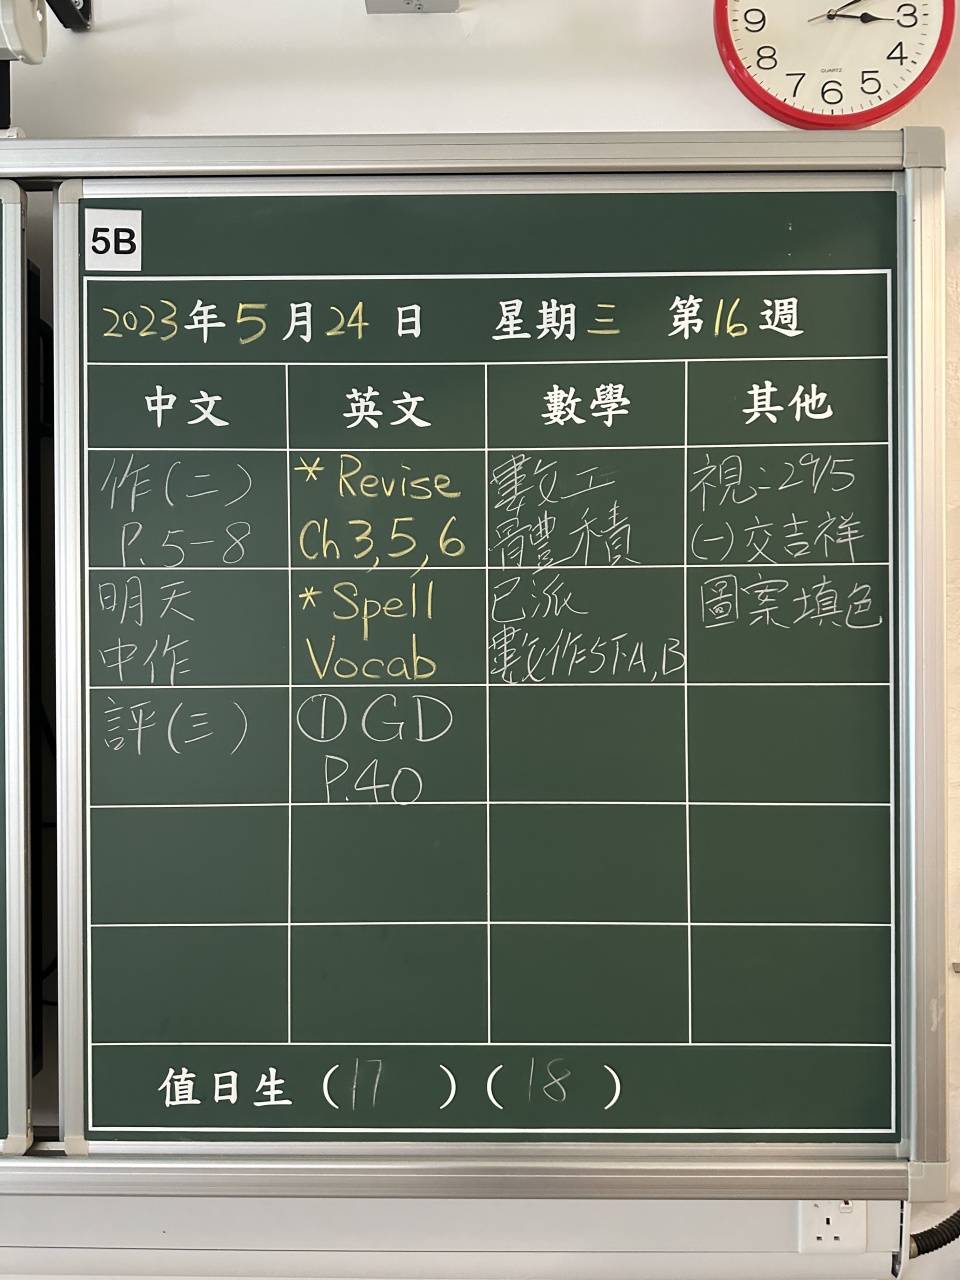 9
3
8
4
7
6
5
QUARTZ
5B
2023年5月24日 星期三 第16週
中文 英文 數學 其他
作(二)
P.5-8
* Revise
Ch 3,5,6
數工
體積
視:29/5
(一)交吉祥
明天
中作
* Spell
Vocab
已派
數作5下A,B
圖案填色
評(三)
①GD
P.40
值日生(17)(18)